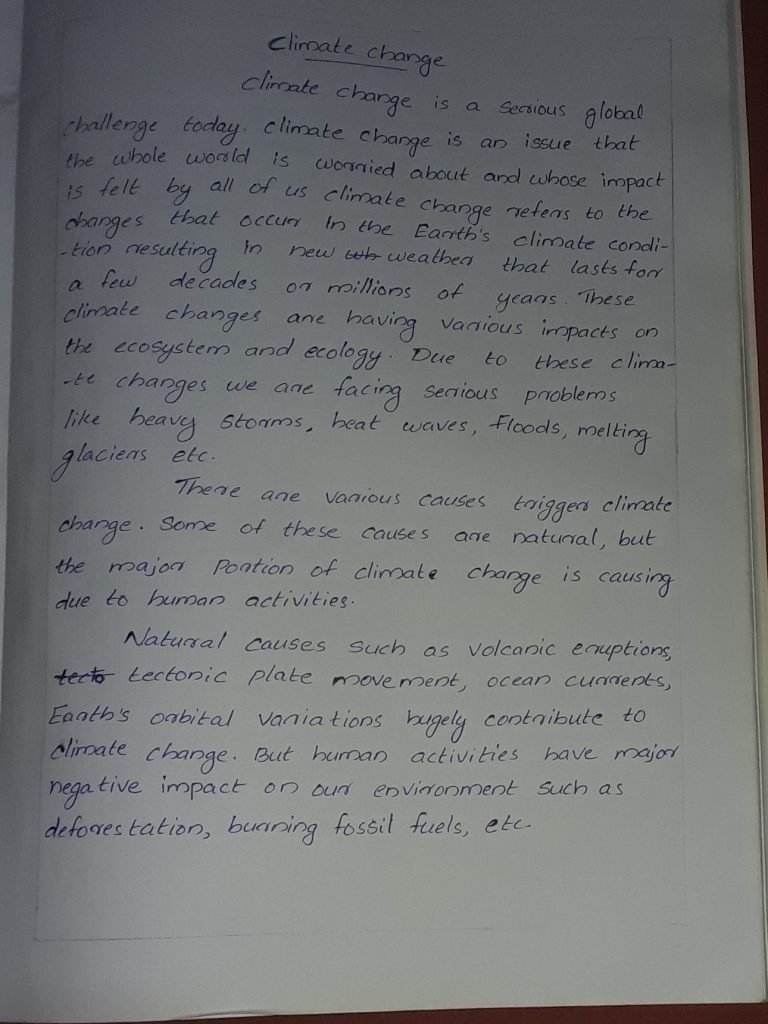 Climate change
Climate change is a serious global
challenge today. climate change is an issue that
the whole world is worried about and whose impact
is felt by all of us climate change refers to the
changes that occur In the Earth's climate condi-
-tion resulting In new weather that lasts for
a few decades or millions of years. These
climate changes are having various impacts on
the ecosystem and ecology. Due to these clima-
-te changes we are facing serious problems
like heavy storms, heat waves, floods, melting
glaciers etc.
There are various causes trigger climate
change. Some of these causes are natural, but
the major Portion of climate change is causing
due to human activities.
Natural causes such as volcanic eruptions,
tecto tectonic plate movement, ocean currents,
Earth's orbital variations hugely contribute to
climate change. But human activities have major
negative impact on our environment such as
deforestation, burning fossil fuels, etc.